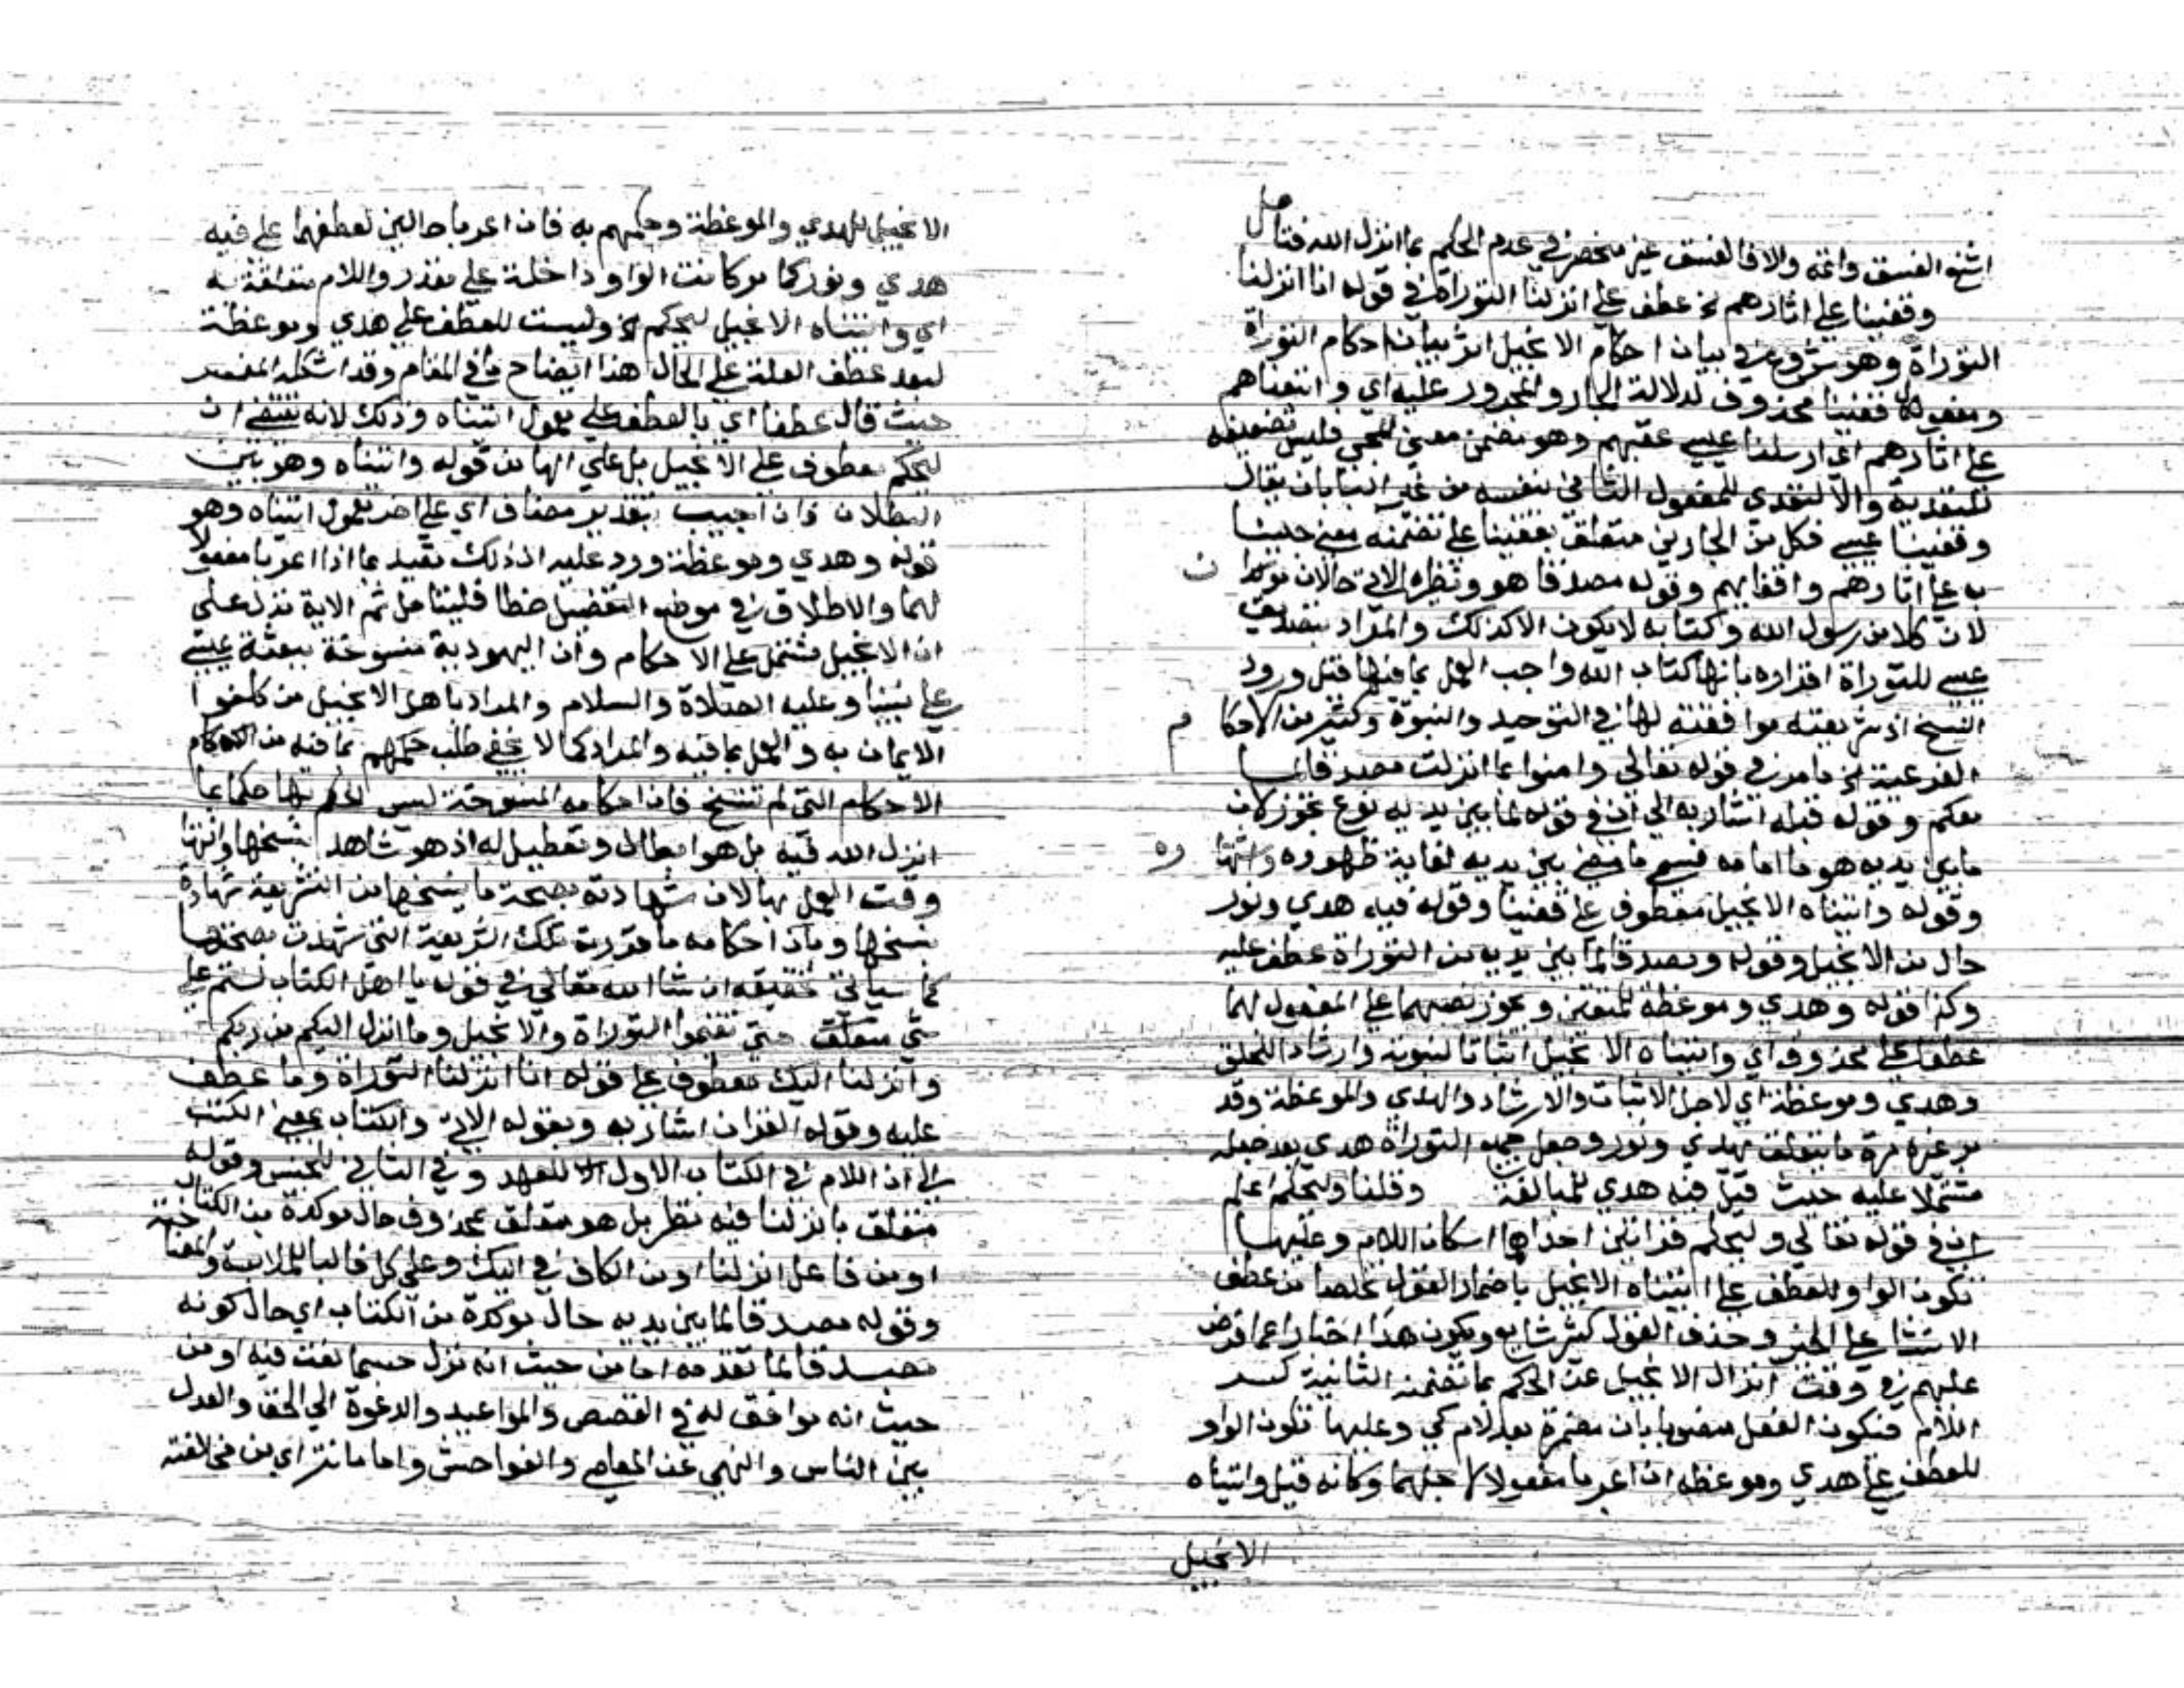 اشنع الفسق واتمه والا فالفسق غير منحصر في عدم الحكم بما انزل الله فتامل
وقفينا على اثارهم الخ عطف على انزلنا التوراة في قوله انا انزلنا
التوراة وهو شروع في بيان احكام الانجيل اثر بيان احكام التوراة
ومفعول قفينا محذوف لدلالة الجار والمجرور عليه اي واتبعناهم
على اثارهم اي ارسلنا عيسى عقبهم وهو مضمن معنى المجي فليس تضعيفه
للتعدية والا لتعدى للمفعول الثاني بنفسه من غير البا بان يقال
وقفينا عيسى فكل من الجارين متعلق بقفينا على تضمنه معنى جينا
به على اثارهم واقفايهم وقوله مصدقا هو ونظيره الاتي حالان موكدا ن
لان كلا من رسول الله وكتابه لا يكون الا كذلك والمراد بتصديق
عيسى للتوراة اقراره بانها كتاب الله واجب العمل بما فيها قبل ورود
النسخ اذ شريعته موافقته لها في التوحيد والنبوة وكثير من الاحكا م
الفرعية الخ ما مر في قوله تعالى وامنوا بما انزلت مصدقا لما
معكم وقوله قبله اشار به الى ان في قوله لما بين يديه نوع تجوز لان
ما بين يديه هو ما امامه فسمي ما مضى بين يديه لغاية ظهوره واشتها ره
وقوله واتيناه الانجيل معطوف على قفينا وقوله فيه هدي ونور
حال من الانجيل وقوله ومصدقا لما بين يديه من التوراة عطف عليه
وكذا قوله وهدي وموعظة للمتقين ويجوز نصبهما على المفعول لهما
عطفا على محذوف اي واتيناه الانجيل اثباتا لنبوته وارشادا للخلق
وهدي وموعظة اي لاجل الاثبات والارشاد والهدي والموعظة وقد
مر غير مرة ما يتعلق بهدي ونور وجعل جميع التوراة هدي بعد جعله
مشتملا عليه حيث قيل فيه هدي للمبالغة وقلنا وليحكم اعلم
ان في قوله تعالى وليحكم قراتين احداها اسكان اللام وعليها
تكون الواو للعطف على اتيناه الانجيل باضمار القول تخلصا من عطف
الانشا على الخبر وحذف القول كثير شايع ويكون هذا اخبارا عما فرض
عليهم في وقت انزال الانجيل من الحكم بما تضمنه الثانية كسر
اللام فيكون الفعل منصوبا بان مضمرة بعد لام كي وعليها تكون الواو
للعطف على هدي وموعظه ان اعربا مفعولا لاجلهما وكانه قيل واتيناه
الانجيل
الانجيل للهدي والموعظة وحكمهم به فان اعربا حالين لعطفهما على فيه
هدي ونور كما مر كانت الواو داخلة على مقدر واللام متعلقة به
اي واتيناه الانجيل ليحكم الخ وليست للعطف على هدي وموعظة
لبعد عطف العلة على الحال هذا ايضاح ما في المقام وقد اشكله المفسر
حيث قال عطفا اي بالعطف على معمول اتيناه وذلك لانه يقتضي ان
ليحكم معطوف على الانجيل بل على الها من قوله واتيناه وهو بين
البطلان فان اجيب بتقدير مضاف اي على اخر معمول اتيناه وهو
قوله وهدي وموعظة ورد عليه ان ذلك مقيد بما اذا اعربا مفعولا
لهما والاطلاق في موضع التفصيل خطا فليتامل ثم الاية تدل على
ان الانجيل مشتمل على الاحكام وان اليهودية منسوخة ببعثة عيسى
على نبينا وعليه الصلاة والسلام والمراد باهل الانجيل من كلفوا
الايمان به والعمل بما فيه والمراد كما لا يخفى طلب حكمهم بما فيه من الاحكام
الاحكام التي لم تنسخ فان احكامه المنسوخة ليس الحكم بها حكما بما
انزل الله فيه بل هو ابطال وتعطيل له اذ هو شاهد بنسخها وانتها
وقت العمل بها لان شهادته بصحة ما ينسخها من الشريعة شهادة
بنسخها وبان احكامه ما قررته تلك الشريعة التي شهدت بصحتها
كما سياتي تحقيقه ان شا الله تعالى في قوله يا اهل الكتاب لستم على
شي متعلق حتى تقيموا التوراة والانجيل وما انزل اليكم من ربكم
وانزلنا اليك معطوف على قوله انا انزلنا التوراة وما عطف
عليه وقوله القران اشار به وبقوله الاتي والكتاب بمعنى الكتب
الى ان اللام في الكتاب الاول للعهد وفي الثاني للجنس وقوله
متعلق بانزلنا فيه نظر بل هو متعلق بمحذوف حال موكدة من الكتاب
او من فاعل انزلنا او من الكاف في اليك وعلى كل فالبا للملابسة والمصا حبة
وقوله مصدقا لما بين يديه حال موكدة من الكتاب اي حال كونه
مصدقا لما تقدمه اما من حيث انه نزل حسبما نعت فيه او من
حيث انه موافق له في القصص والمواعيد والدعوة الى الحق والعدل
بين الناس والنهي عن المعاصي والفواحش واما ما يترااي من مخالفته